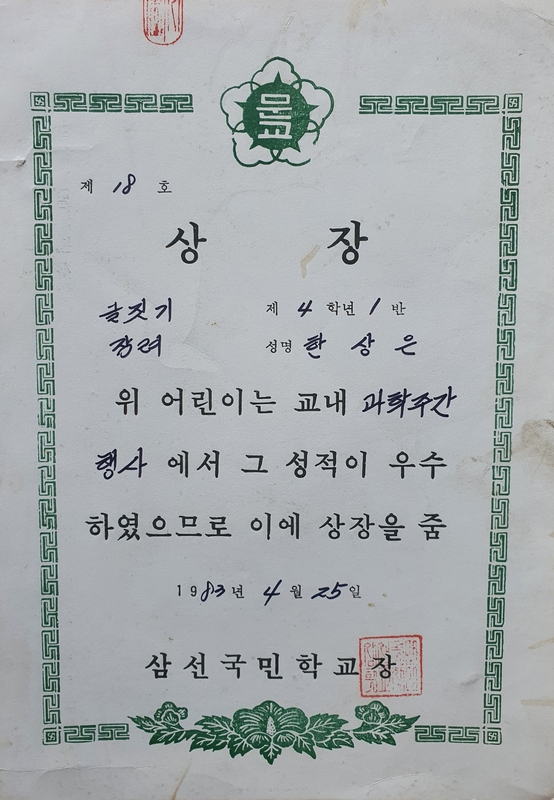 문교
제 18 호
상 장
글짓기 제 4 학년 1 반
장려 성명 한 상 은
위 어린이는 교내 과학주간
행사 에서 그 성적이 우수
하였으므로 이에 상장을 줌
1983년 4 월 25일
삼선국민학교장